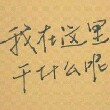 我在这里
干什么呢